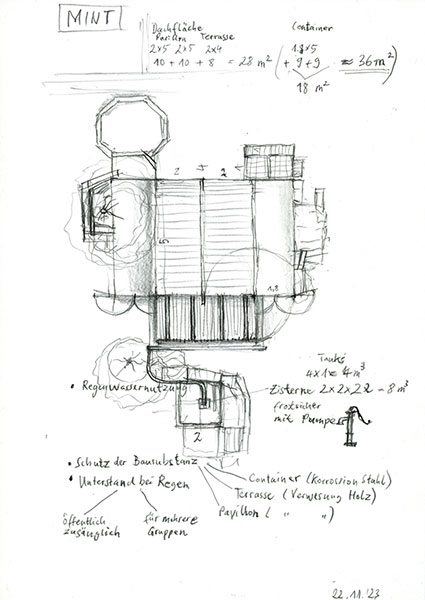 MINT
Dachfläche
Pavillon Terrasse
2x5 2x5 2x4
10 + 10 + 8 = 28 m²
Container
1.8x5
(+ 9 + 9 ≈ 36 m²)
18 m²
2
2
5
1,8
Tanks
4 x 1 = 4 m³
• Regenwassernutzung
Zisterne 2 x 2 x 2 = 8 m³
frostsicher
mit Pumpe
2
• Schutz der Bausubstanz
• Unterstand bei Regen
Container (Korrossion Stahl)
Terrasse (Verwesung Holz)
Pavillon ( " " )
öffentlich
zugänglich
für mehrere
Gruppen
22.11.'23